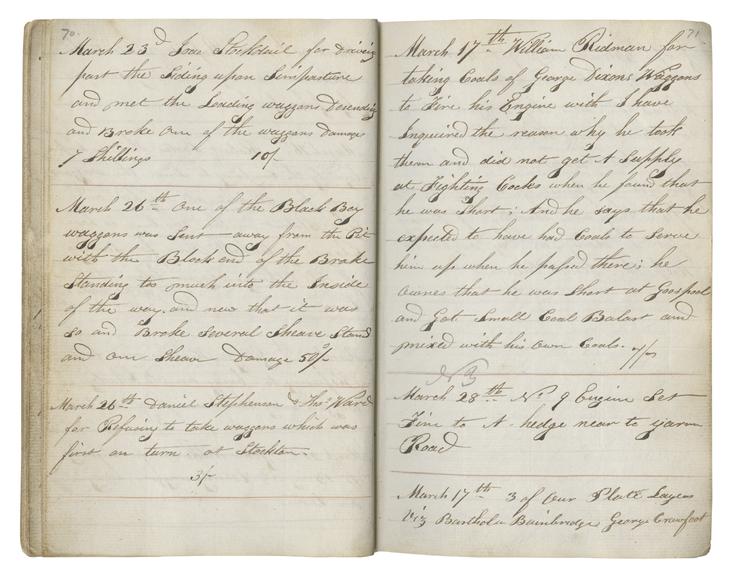 70
March 23d Isac Stockdail for Driveing
past the Siding upon Simpasture
and met the Leading waggons Desending
and Broke one of the waggons Damage
7 Shillings 10/-
March 26th One of the Black Boy
waggons was Sent away from the Pit
with the Block end of the Brake
Standing to much into the Inside
of the way. and now that it was
So and Broke Several Sheave Stands
and one Sheave Damage 50/-
March 26th Daniel Stephenson & Thos. Ward
for Refusing to take waggons which was
first on turn at Stockton.
3/-
71
March 17th William Ridman for
taking Coals of George Dixons Waggons
to Fire his Engine with I have
Inquired the reason why he took
them and did not get A Supply
at Fighting Cocks when he found that
he was Short; And he says that he
expected to have had Coals to Serve
him up when he passed there; he
ownes that he was Short at Goospool
and Got Small Coal Balast and
mixed with his own Coals.
March 28th No. 9 Engine Set
Fire to A hedge near to yarm
Road
March 17th 3 of Our Plate Layers
Viz Barthol Bainbridge George Crawfoot